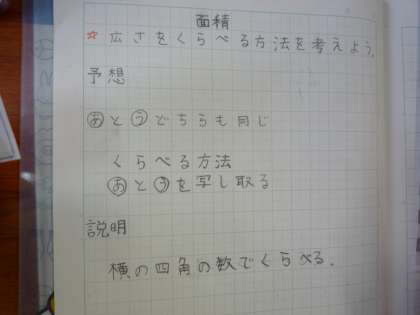 面積
☆広さをくらべる方法を考えよう。
予想
あとうどちらも同じ
くらべる方法
あとうを写し取る
説明
横の四角の数でくらべる。